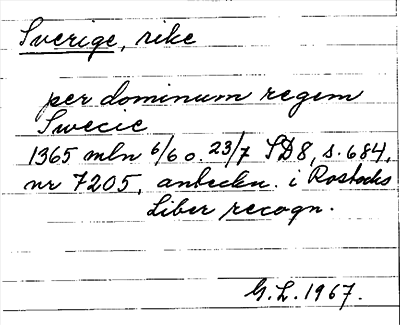 Sverige, rike
per dominum regem
Swecie
1365 mln 6/6 o. 23/7 SD8, s. 684,
nr 7205, anteckn. i Rostocks
Liber recogn.
G.L. 1967.